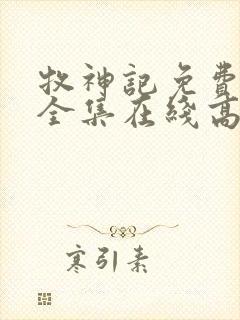 牧神記免費
全集在綫高
寒引素